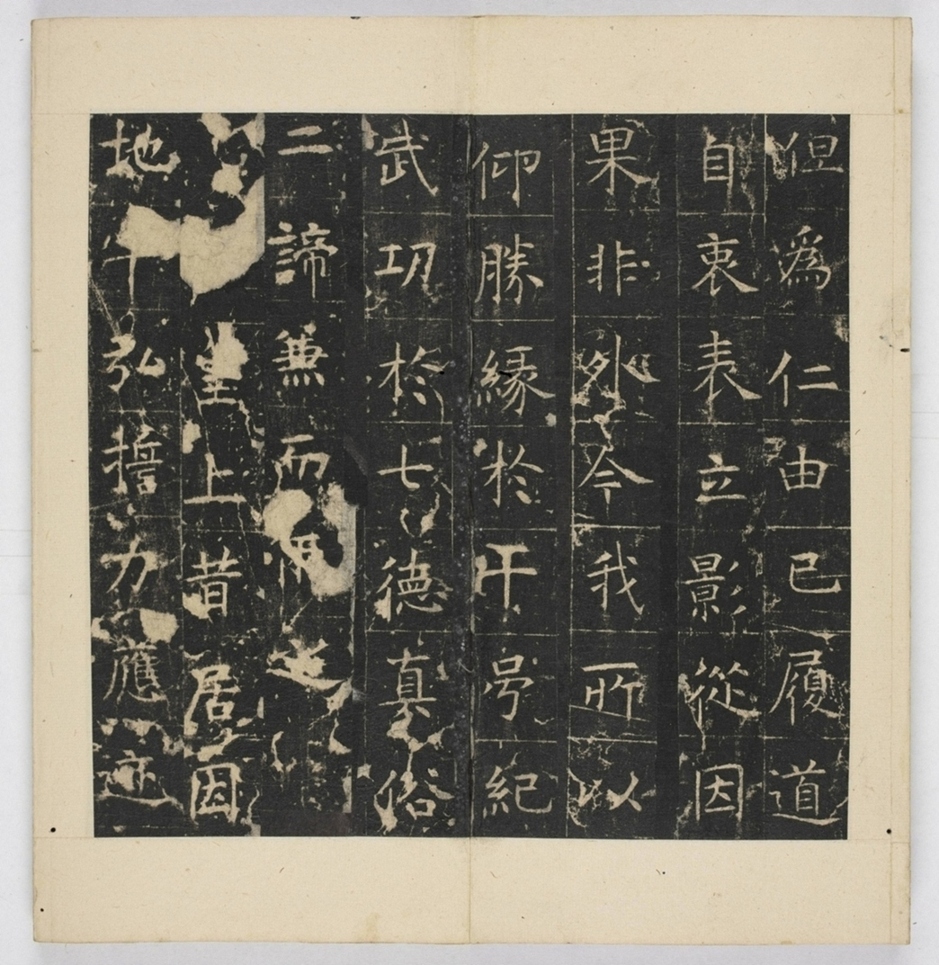 但為仁由己履道
自衷表立影從因
果非外今我所以
仰勝緣於干号紀
武功於七德真俗
二諦兼而
皇上昔居因
地弘誓力應迹